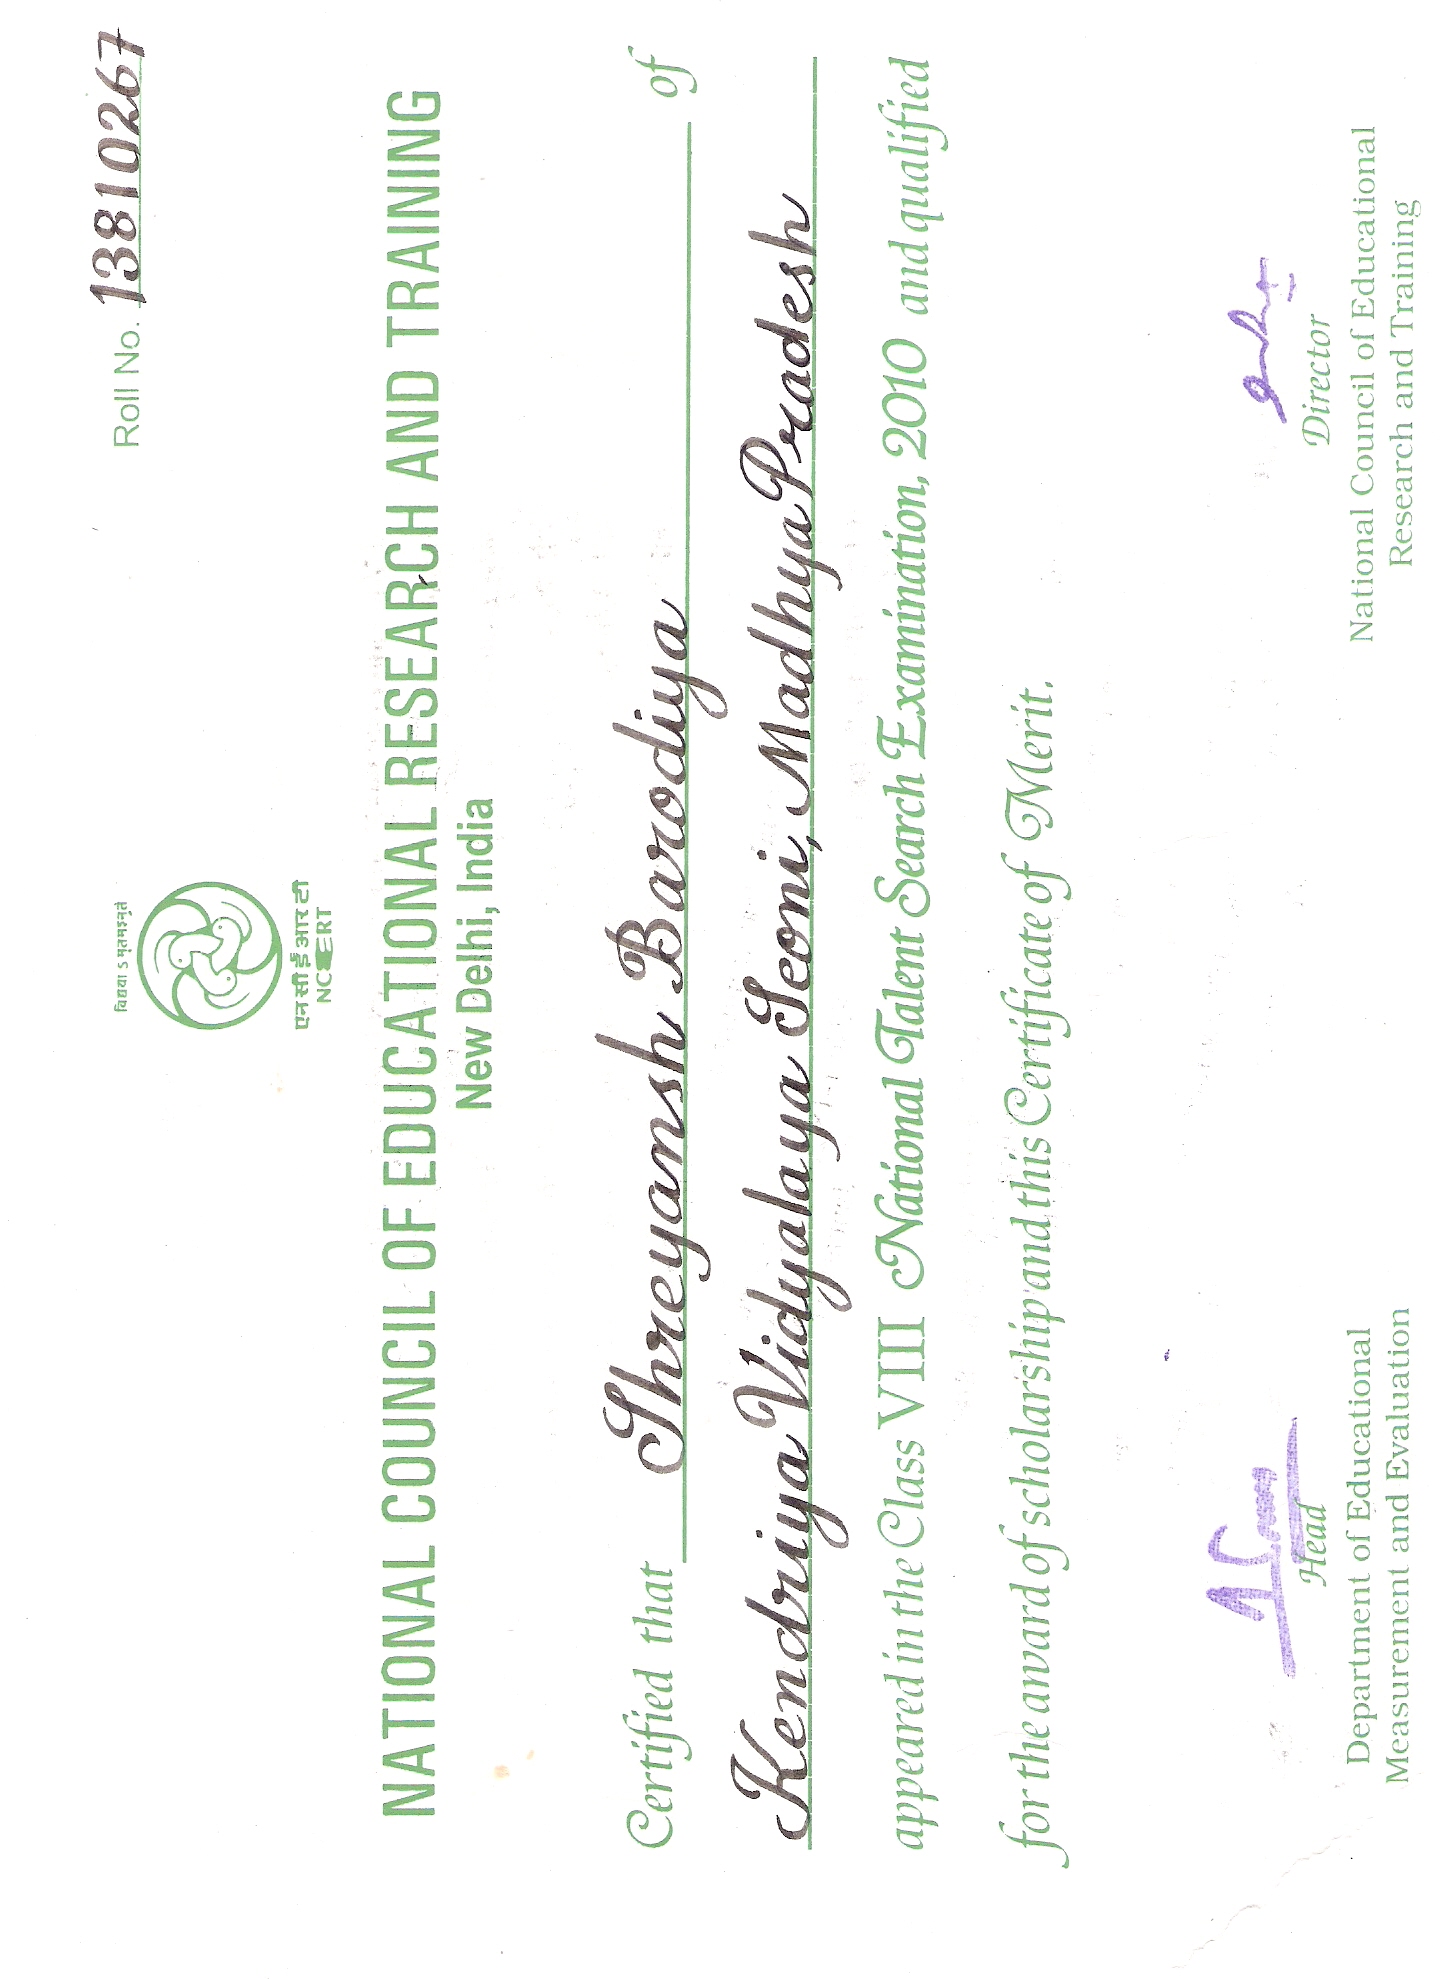 Roll No. 13810267
विद्यया ऽ मृतमश्नुते
एन सी ई आर टी
NCERT
NATIONAL COUNCIL OF EDUCATIONAL RESEARCH AND TRAINING
New Delhi, India
Certified that Shreyansh Barodiya of
Kendriya Vidyalaya Seoni, Madhya Pradesh
appeared in the Class VIII National Talent Search Examination, 2010 and qualified
for the award of scholarship and this Certificate of Merit.
Head
Department of Educational
Measurement and Evaluation
Director
National Council of Educational
Research and Training